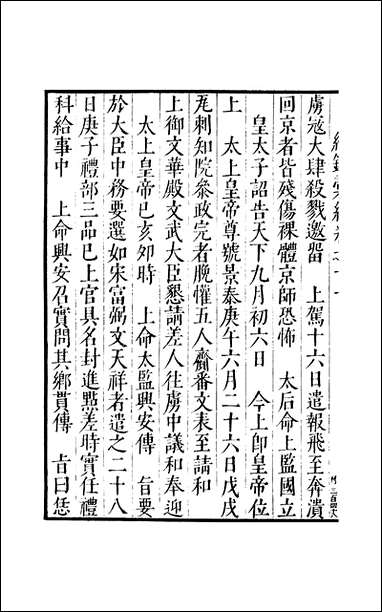 虜寇大肆殺戮邀留　上駕十六日遣報飛至奔潰
回京者皆殘傷裸體京師恐怖　太后命上監國立
皇太子詔告天下九月初六日　今上卽皇帝位
上　太上皇帝尊號景泰庚午六月二十六日戊戌
刺知院叅政完者脫懽五人齎番文表至請和
上御文華殿文武大臣懇請差人往虜中議和奉迎
太上皇帝己亥夘時　上命太監興安傳　旨要
於大臣中務要選如宋富弼文天祥者遣之二十八
日庚子禮部三品已上官具名封進點差時實任禮
科給事中　上命興安召實問其鄉貫傳　旨曰恁